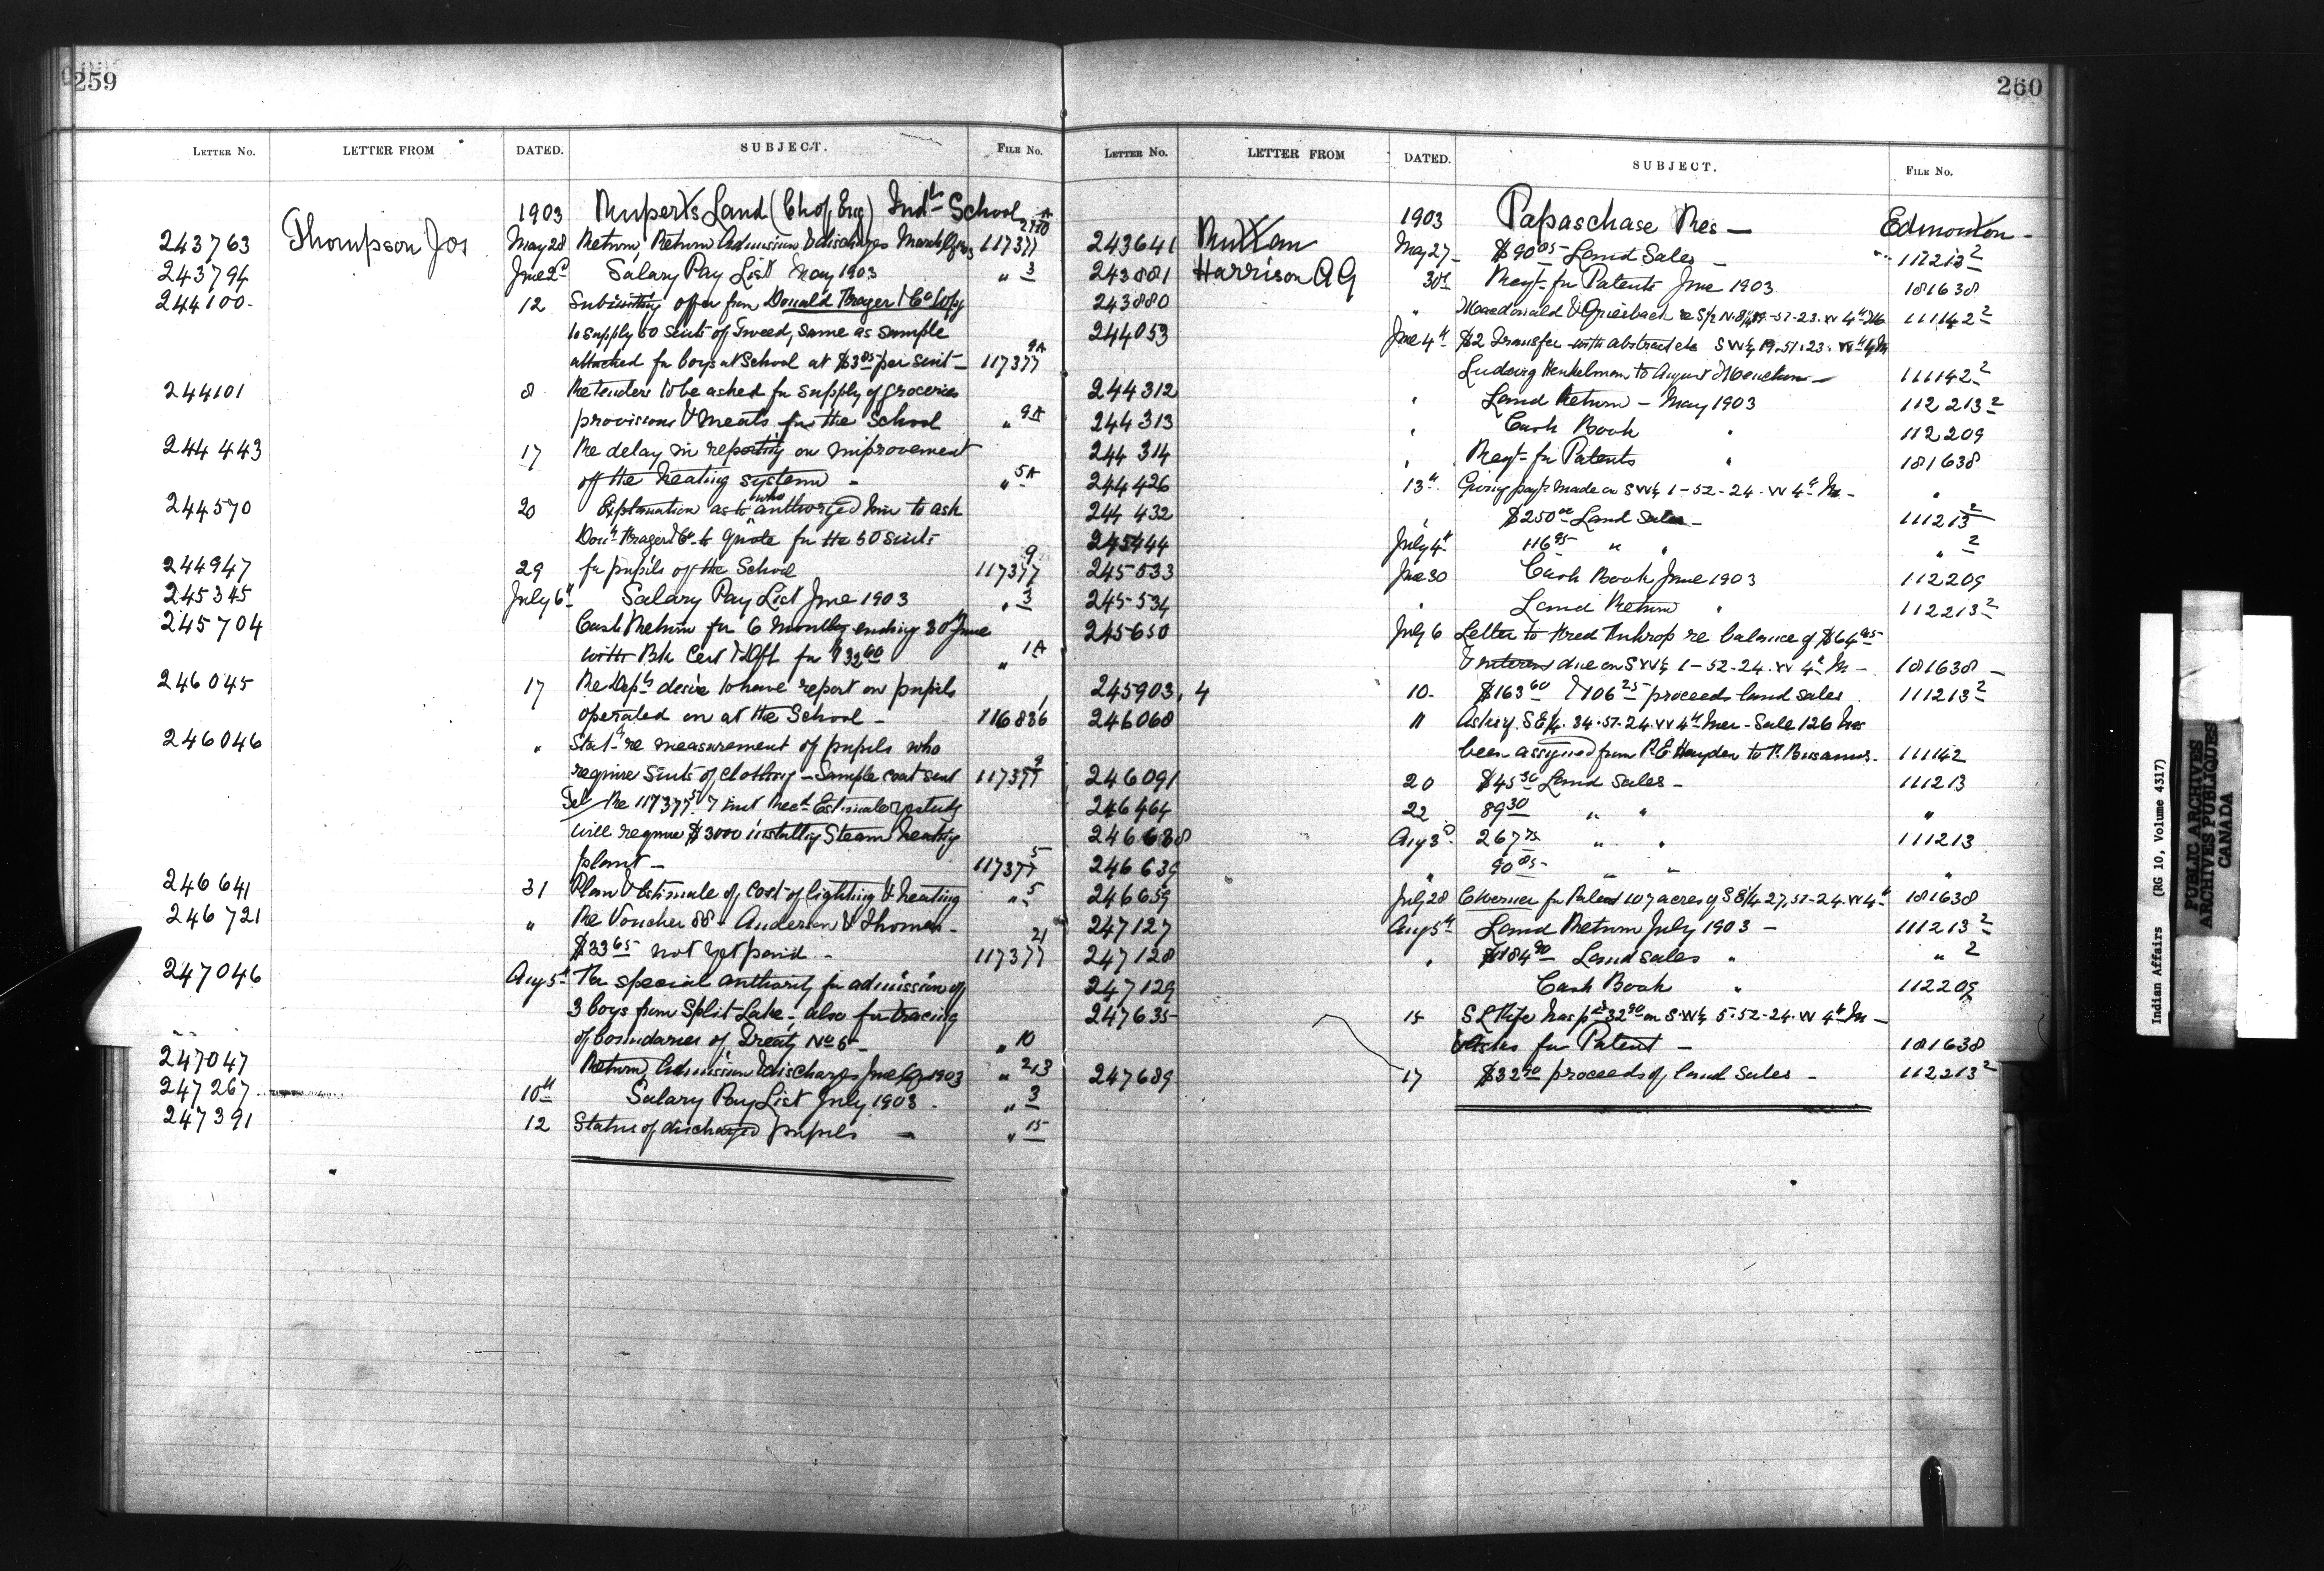 259
LETTER No. LETTER FROM DATED. SUBJECT. FILE No.
1903 Rupert's Land (Ch of Eng) Indl School
243763 Thompson Jos May 28 Return, Return Admission & discharges March Qr 03 117377
243794 June 2d Salary Pay List May 1903 " 3
244100 12 Submitting offer from Donald Fraser & Co Wpg
to supply 50 suits of Tweed, same as sample
attached for boys at School at $3.85 per suit - 117377 9A
244101 8 Re tenders to be asked for supply of groceries
provisions & meats for the School " 9A
244443 17 Re delay in reporting on improvement
of the heating system - " 5A
244570 20 Explanation as to who authorized him to ask
Don. Fraser & Co to quote for the 50 suits
244947 29 for pupils of the School 117377 9
245345 July 6th Salary Pay List June 1903 " 3
245704 Cash Return for 6 months ending 30 June
with Bk Cert & Dft for $32.00 " 1A
246045 17 Re Dept's desire to have report on pupils
operated on at the School - 116836 1
246046 " Stat. re measurement of pupils who
require suits of clothing - Sample coat sent 117377 9
Tel Re 117377 5 7 inst Recd Estimates
will require $3000 installing Steam heating
plant - 117377 5
246641 31 Plan & Estimate of cost of lighting & heating " 5
246721 " Re Voucher 88 - Anderson & Thomas -
$33.65 not yet paid - 117377 21
247046 Aug 5th For special authority for admission of
3 boys from Split Lake, also for tracing
of boundaries of Treaty No 5 - " 10
247047 Return, Admission & discharges June Qr 1903 " 2/3
247267 10th Salary Pay List July 1903 - " 3
247391 12 Status of discharged pupils - " 15
260
LETTER No. LETTER FROM DATED. SUBJECT. FILE No.
1903 Papaschase Res - Edmonton -
243641 Ruttan May 27 $90.05 Land Sales - 112213 2
243881 Harrison A G 30th Regt for Patents June 1903 181638
243880 " Macdonald & Griesbach re 111142 2
244053 June 4th $2 Transfer with abstract etc SW¼ 19.51.23. W 4th M
Ludwig Henkelman to August - 111142 2
244312 " Land Return - May 1903 112213 2
244313 " Cash Book " 112209
244314 " Regt for Patents " 181638
244426 13th Giving payt made on SW¼ 1-52-24-W 4th M - "
244432 " $250.00 Land Sales - 111213 2
245444 July 4th 116.95 " " " 2
245533 June 30 Cash Book June 1903 112209
245534 " Land Return " 112213 2
245650 July 6 Letter to Fred re balance of $64.95
& interest due on SW¼ 1-52-24-W 4th M - 181638 -
245903, 4 10 - $163.60 & 106.25 proceeds land sales 111213 2
246060 11 Asking S E¼. 34.51.24. W 4th Mer - Sale 126 has
been assigned from R E Hayden to 111142
246091 20 $45.30 Land Sales - 111213
246464 22 89.30 " " "
246638 Aug 3d 267 " " 111213
246639 " 90.85 " " "
246659 July 28 for Patent 107 acres of S E¼ 27.51-24. W 4th 181638
247127 Aug 5th Land Return July 1903 - 111213 2
247128 " $184.90 Land sales " " 2
247129 Cash Book " 112209
247635 15 S L Fife has pd $32.90 on S.W¼ 5-52-24-W 4th M -
& asks for Patent - 181638
247689 17 $32.90 proceeds of land sales - 112213 2
Indian Affairs (RG 10, Volume 4317)
PUBLIC ARCHIVES
ARCHIVES PUBLIQUES
CANADA